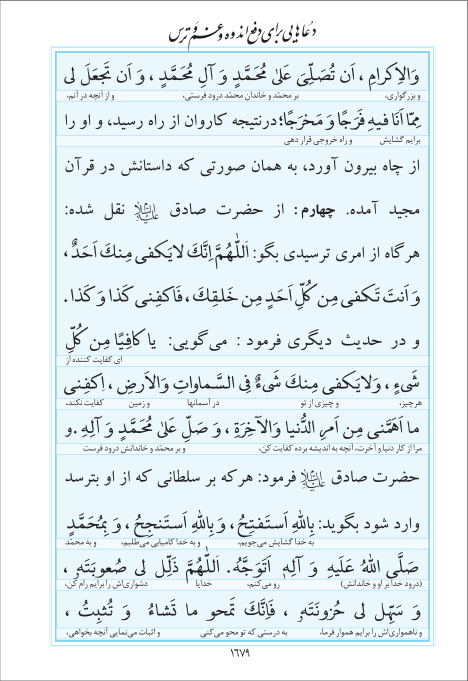 دُعاهایی برای دفع اندوه و غم و ترس
وَالاِکرامِ ، اَن تُصَلِّیَ عَلیٰ مُحَمَّدٍ وَ آلِ مُحَمَّدٍ ، وَ اَن تَجعَلَ لی
و بزرگواری، بر محمّد و خاندان محمّد درود فرستی، و از آنچه در آنم،
مِمّا اَنَا فیهِ فَرَجًا وَ مَخرَجًا؛ درنتیجه کاروان از راه رسید، و او را
برایم گشایش و راه خروجی قرار دهی
از چاه بیرون آورد، به همان صورتی که داستانش در قرآن
مجید آمده. چهارم: از حضرت صادق علیه‌السلام نقل شده:
هرگاه از امری ترسیدی بگو: اَللّٰهُمَّ اِنَّكَ لایَکفی مِنكَ اَحَدٌ ،
وَ اَنتَ تَکفی مِن کُلِّ اَحَدٍ مِن خَلقِكَ ، فَاکفِنی کَذا وَ کَذا .
و در حدیث دیگری فرمود : می‌گویی: یا کافِیًا مِن کُلِّ
ای کفایت کننده از
شَیءٍ ، وَلایَکفی مِنكَ شَیءٌ فِی السَّماواتِ وَالاَرضِ ، اِکفِنی
هرچیز، و چیزی از تو در آسمانها و زمین کفایت نکند،
ما اَهَمَّنی مِن اَمرِ الدُّنیا وَالآخِرَةِ ، وَ صَلِّ عَلیٰ مُحَمَّدٍ وَ آلِهِ .و
مرا از کار دنیا و آخرت، آنچه به اندیشه برده کفایت کن، و بر محمّد و خاندانش درود فرست
حضرت صادق علیه‌السلام فرمود: هرکه بر سلطانی که از او بترسد
وارد شود بگوید: بِاللهِ اَستَفتِحُ ، وَ بِاللهِ اَستَنجِحُ ، وَ بِمُحَمَّدٍ
به خدا گشایش می‌جویم، و به خدا کامیابی می‌طلبم، و به محمّد
صَلَّی اللهُ عَلَیهِ وَ آلِهِ اَتَوَجَّهُ. اَللّٰهُمَّ ذَلِّل لی صُعوبَتَهُ ،
(درود خدا بر او و خاندانش) رو می‌کنم، خدایا دشواری‌اش را برایم رام کن،
وَ سَهِّل لی حُزونَتَهُ ، فَاِنَّكَ تَمحو ما تَشاءُ وَ تُثبِتُ ،
و ناهمواری‌اش را برایم هموار فرما، به درستی که تو محو می‌کنی و اثبات می‌نمایی آنچه بخواهی،
۱۶۷۹